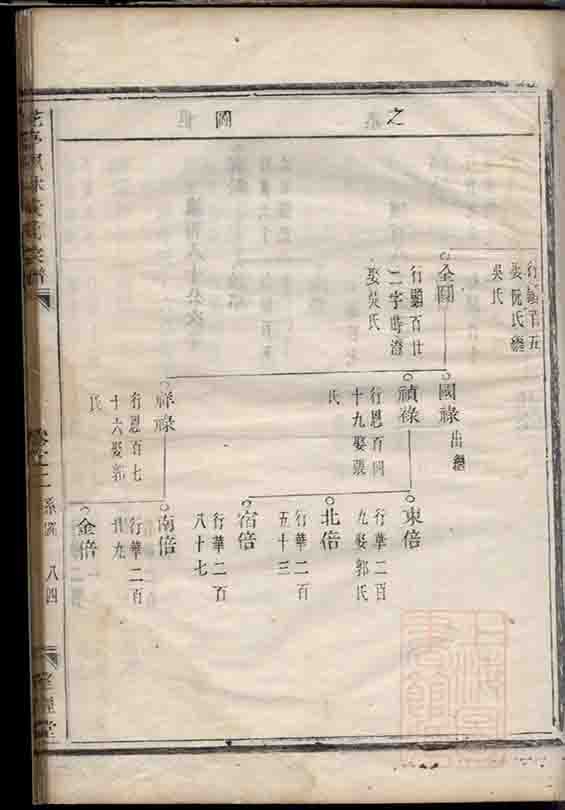 之
圖
行顯百五
娶阮氏繼
吳氏
全圓
行顯百廿
二字時澄
娶吳氏
國祿
出繼
禎祿
行恩百四
十九娶張
氏
祥祿
行恩百七
十六娶郭
氏
東倍
行華二百
九娶郭氏
北倍
行華二百
五十三
宿倍
行華二百
八十七
南倍
行華二百
廿九
金倍
宗譜
卷之二
系圖
八四
堂